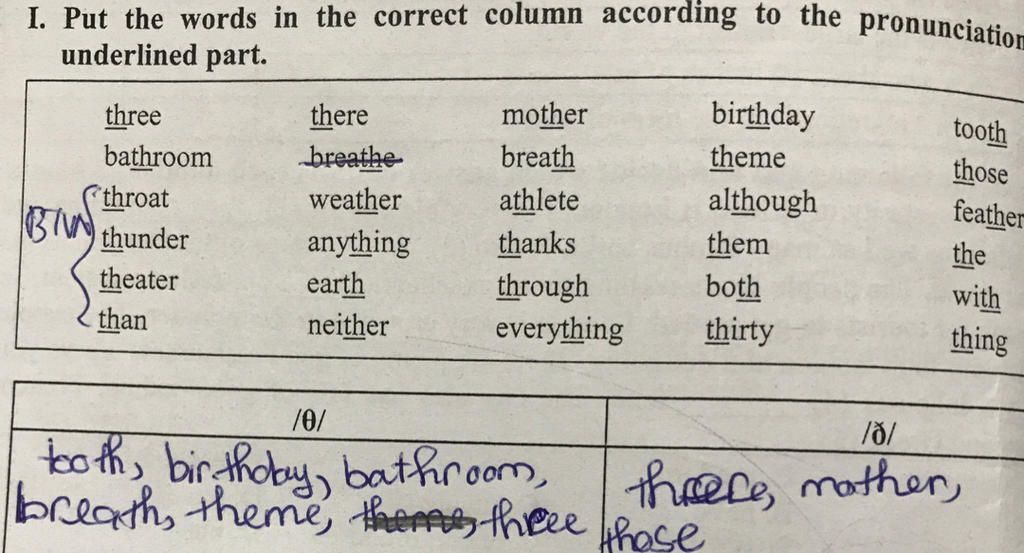 I. Put the words in the correct column according to the pronunciation
underlined part.
three there mother birthday tooth
bathroom breathe breath theme those
throat weather athlete although feather
BTW
thunder anything thanks them the
theater earth through both with
than neither everything thirty thing
/θ/ /ð/
tooth, birthday, bathroom, there, mother,
breath, theme, theme, three those